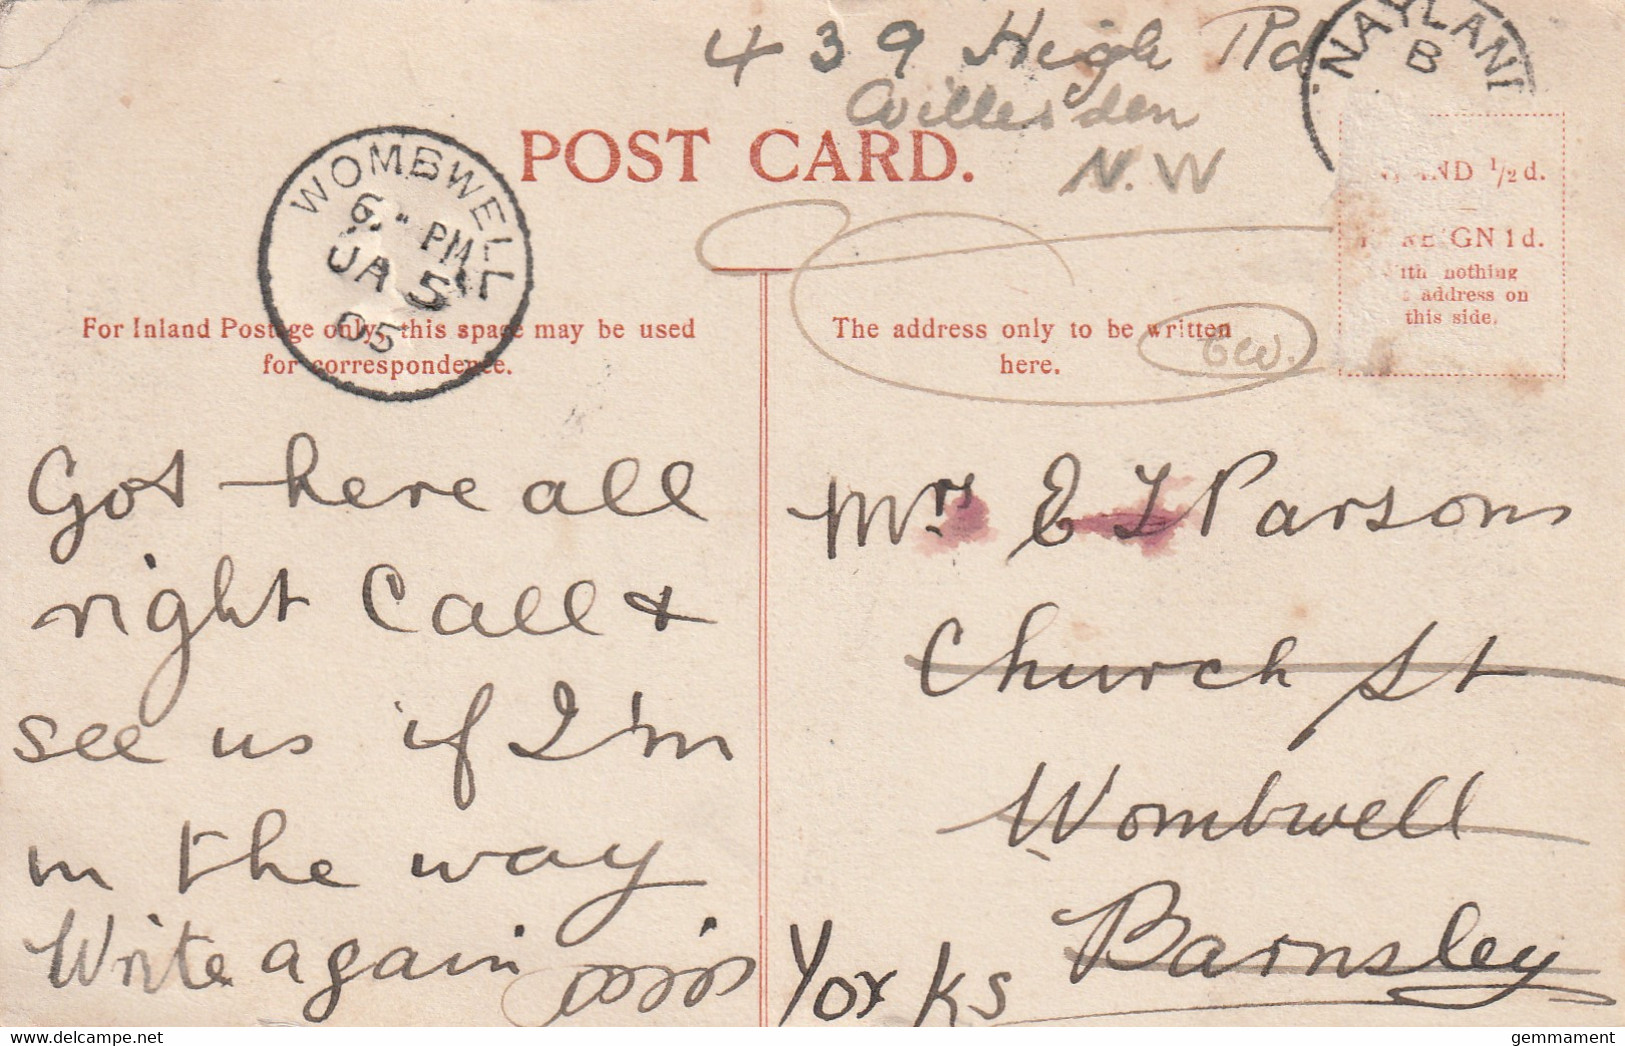 439 High Rd
Willesden
N.W
NAYLAN
B
POST CARD.
WOMBWELL
6 PM
JA 5
05
½d.
GN 1d.
nothing
address on
this side.
For Inland Postage only, this space may be used
for correspondence.
The address only to be written
here.
Got here all
right Call +
see us if I'm
in the way
Write again
Mrs E T Parsons
Church St
Wombwell
Barnsley
Yorks
delcampe.net
gemmament